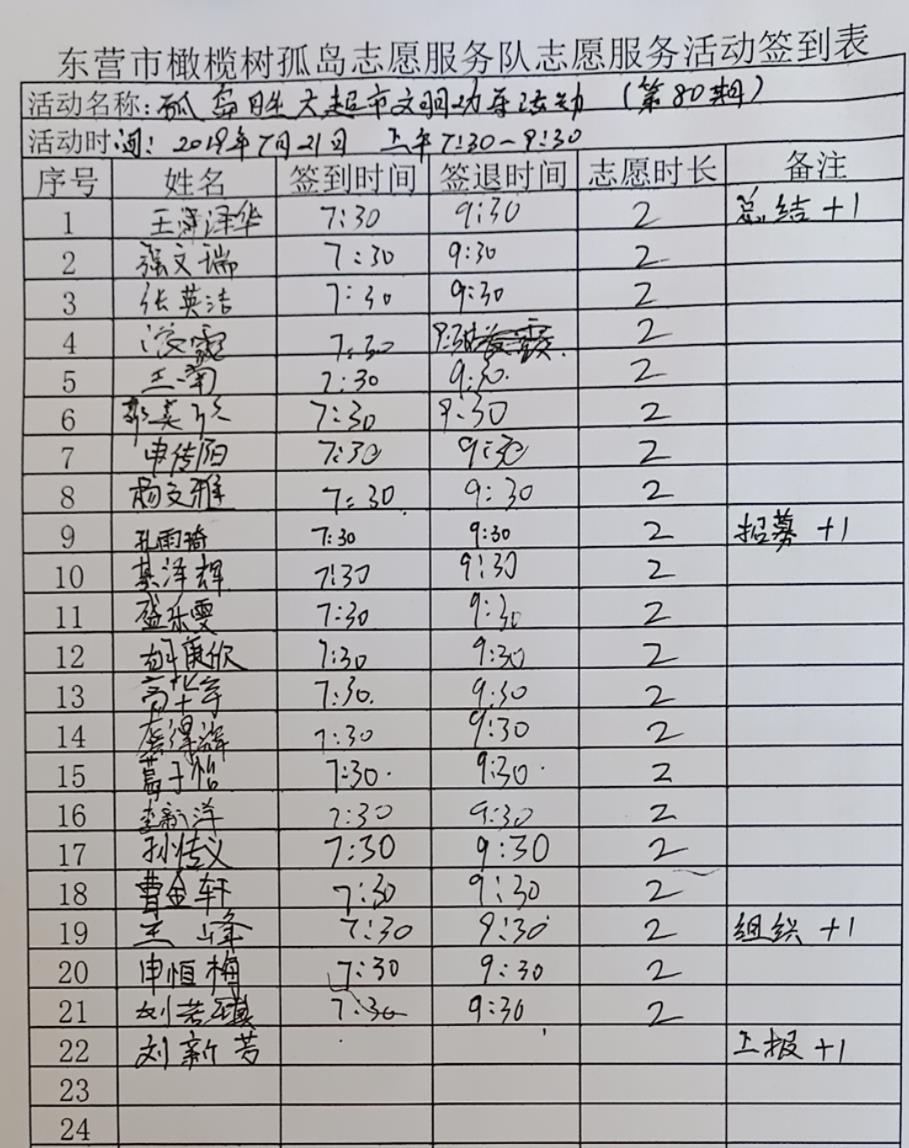 东营市橄榄树孤岛志愿服务队志愿服务活动签到表
活动名称：孤岛胜大超市文明劝导活动（第80期）
活动时间：2019年7月21日 上午7:30-9:30
序号 姓名 签到时间 签退时间 志愿时长 备注
1 王泽华 7:30 9:30 2 总结+1
2 张文瑞 7:30 9:30 2
3 张英洁 7:30 9:30 2
4 7:30 9:30 2
5 王 7:30 9:30. 2
6 郭美 7:30 9:30 2
7 申传阳 7:30 9:30 2
8 杨文雅 7:30 9:30 2
9 孔雨琦 7:30 9:30 2 招募+1
10 泽辉 7:30 9:30 2
11 盛乐雯 7:30 9:30 2
12 胡康欣 7:30 9:30 2
13 高华军 7:30. 9:30 2
14 7:30 9:30 2
15 葛子怡 7:30. 9:30. 2
16 李新洋 7:30 9:30 2
17 孙传义 7:30 9:30 2
18 曹金轩 7:30 9:30 2
19 王峰 7:30 9:30 2 组织+1
20 申恒梅 7:30 9:30 2
21 刘若琪 7:30 9:30 2
22 刘新芳 上报+1
23
24